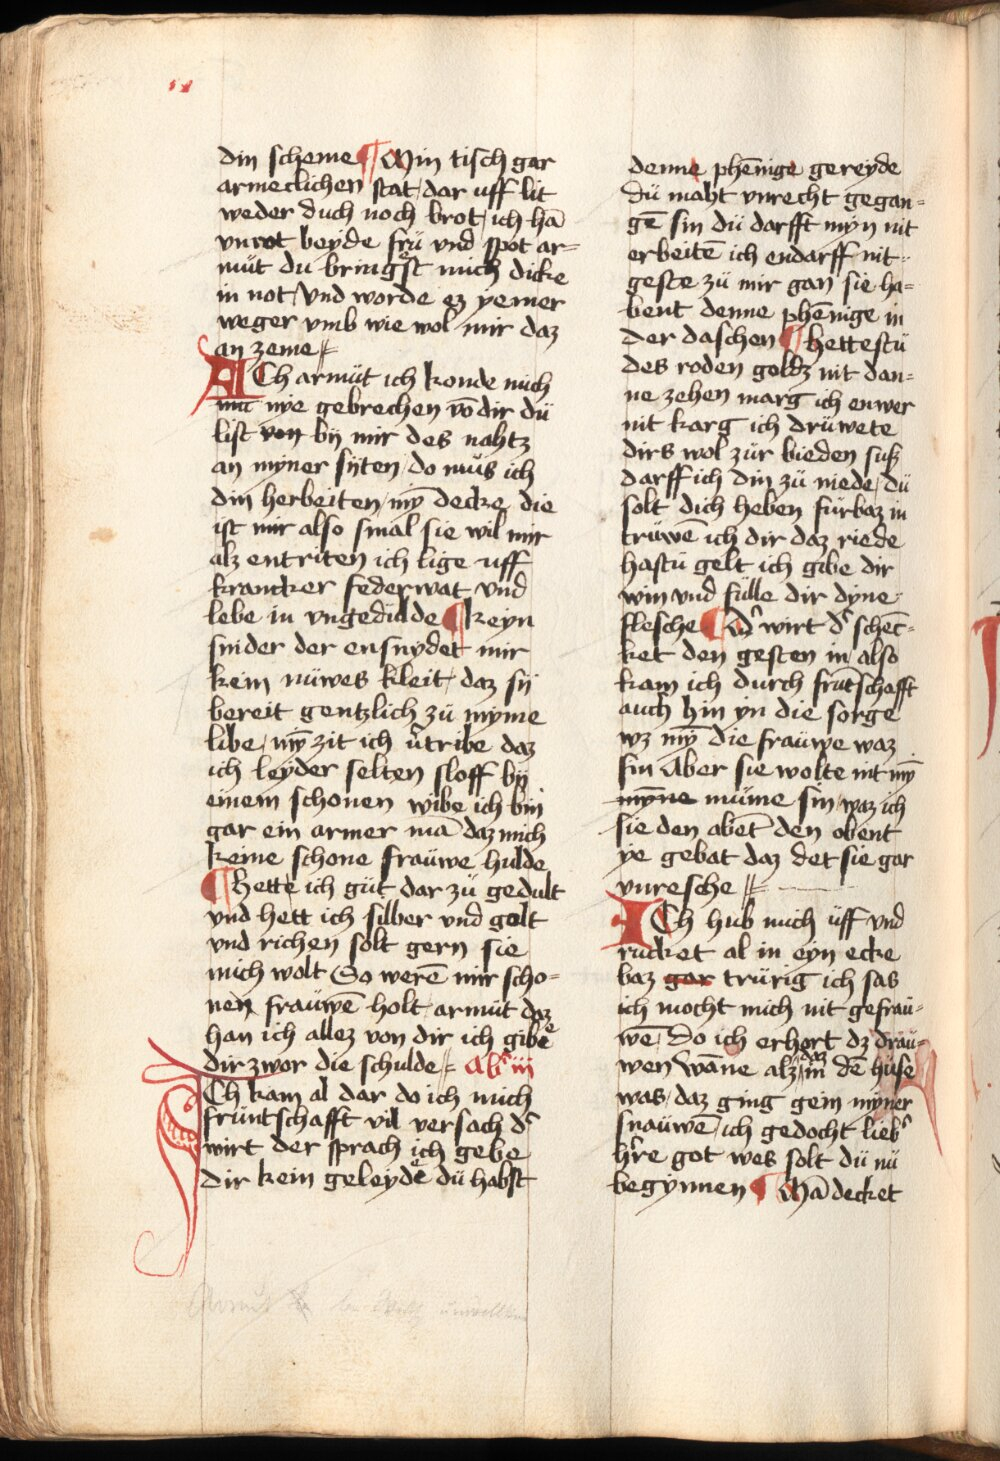 din scheme ¶ Min tisch gar
armeclichen stat / dar uff lit
weder duch noch brot / ich hā
vnrot beyde frü vnd spot ar=
müt du bringest mich dicke
in not / Vnd worde ez yemer
weger vmb wie wol mir daz
an zeme
ACh armüt ich konde mich
mit nÿe gebrechen vō dir dü
list von bij mir des nahtz
an myner sijten / do müs ich
din herbeiten / mȳ decke die
ist mir also smal sie wil mir
alz entriten ich lige uff
krancker federwat vnd
lebe in vngedülde ¶ keyn
snider der ensnydet mir
kein nüwes kleit / daz sij
bereit gentzlich zü myme
libe / mȳ zit ich v̾tribe daz
ich leyder selten sloff bij
einem schonen wibe ich bin
gar ein armer mā daz mich
keine schone fraüwe hulde
¶ hette ich güt dar zü gedult
vnd hett ich silber vnd golt
vnd richen solt gern sie
mich wolt So werē mir scho=
nen fraüwē holt / armüt daz
han ich allez von dir ich gibe
dir zwor die schulde Ab̾ iij
ICh kam al dar do ich mich
früntschafft vil versach d̾
wirt der sprach ich gebe
dir kein geleyde dü habst
denne phēnige gereyde
dü maht vnrecht gegan=
gē sin dü darfft myn nit
erbeitē ich endarff nit
geste zü mir gan sie ha=
bent denne phēnige in
der daschen ¶ hettestü
des roden goldz nit dan=
ne zehen marg ich enwer
nit karg ich drüwete
dirs wol zür bieden süß
darff ich din zü niede / dü
solt dich heben fürbaz in
trüwē ich dir daz riede
hastü gelt ich gibe dir
win vnd fülle dir dyne
flesche ¶ D̾ wirt d̾ schēc=
ket den gesten in also
kam ich durch frūtschafft
auch hin yn die sorge
wz mȳ die fraüwe waz
fin Aber sie wolte nit mȳ
mȳne müme sin / waz ich
sie den abēt den obent
ye gebat daz det sie gar
vnresche
ICh hub mich üff vnd
rücket al in eyn ecke
baz gar trürig ich sas
ich mocht mich nit gefraü=
wē / do ich erhort dz draü=
wen wāne alz daz in dē hüse
was / daz ging gein myner
snaüwē / ich gedocht lieb̾
h̾re got wes solt dü nü
begynnen ¶ Mā decket